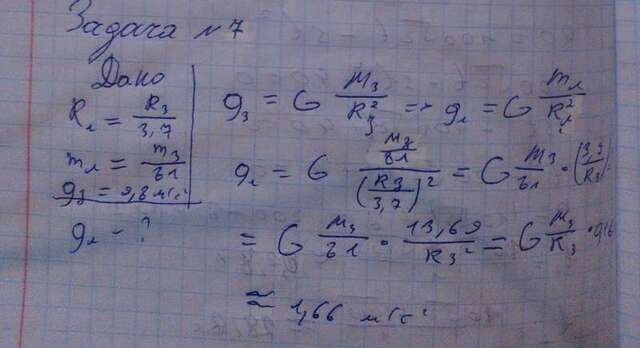 Задача №7
Дано
R_л = R_з / 3,7
m_л = m_з / 81
g_з = 9,8 м/с²
g_л - ?
g_з = G M_з / R_з² => g_л = G m_л / R_л²
g_л = G (M_з / 81) / (R_з / 3,7)² = G M_з / 81 · (3,7 / R_з)²
= G M_з / 81 · 13,69 / R_з² = G M_з / R_з ·
≈ 1,66 м/с²